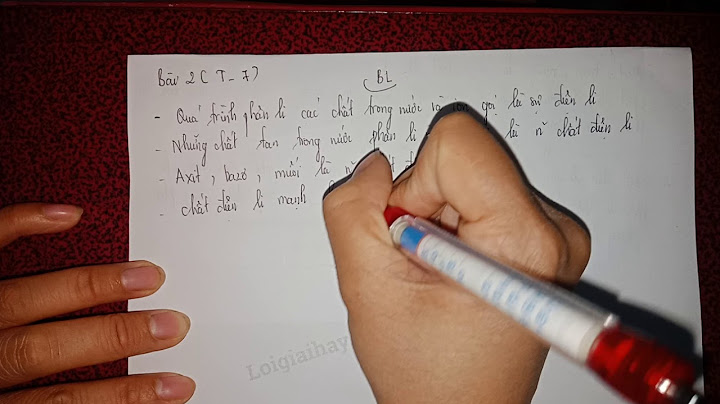 Bài 2 (T-7)
BL
- Quá trình phân li các chất trong nước ra ion gọi là sự điện li
- Những chất tan trong nước phân li là n~ chất điện li
- Axit, bazơ, muối là
- chất điện li mạnh
Loigiaihay